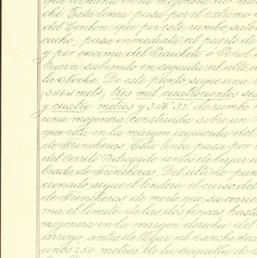 che. Esta linea pasa por el extremo
del Cordon que por este rumbo sale
cacho, pasa inmediata al puerto de
y por encima del
Cueva subiendo en seguida al alto
la Noche. De este punto sigue una
mts, tres mil cuatrocientos
y cuatro metros y de rumbo
una mojonera construida sobre un
que está en la margen izquierda del
de Trincheras. Esta linea pasa por
del Cerrito Pedregado antes de bajar
de Trincheras. Del ultimo pun
cionado sigue el lindero el curso del
de Trincheras, de modo que su corrien
ma el limite de las dos fincas, hasta
mojonera en la margen derecha del
arroyo, antes de llegar al rancho
unos 250 metros de la